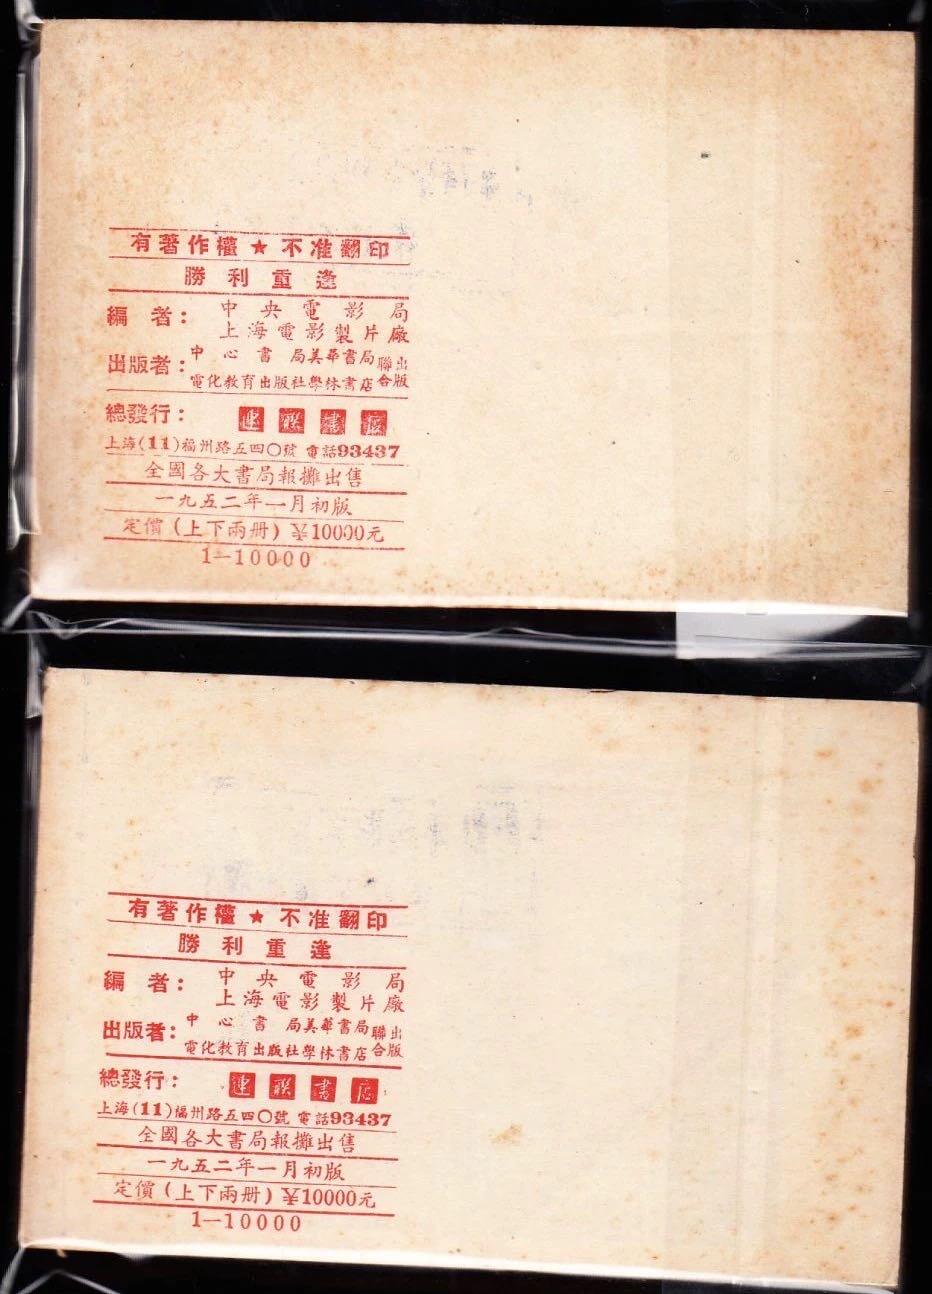 有著作權★不准翻印
勝利重逢
編者：中央電影局
上海電影製片廠
出版者：中心書局美華書局聯出
電化教育出版社學林書店合版
總發行：連聯書店
上海(11)福州路五四〇號 電話93437
全國各大書局報攤出售
一九五二年一月初版
定價(上下兩册)¥10000元
1—10000
有著作權★不准翻印
勝利重逢
編者：中央電影局
上海電影製片廠
出版者：中心書局美華書局聯出
電化教育出版社學林書店合版
總發行：連聯書店
上海(11)福州路五四〇號 電話93437
全國各大書局報攤出售
一九五二年一月初版
定價(上下兩册)¥10000元
1—10000